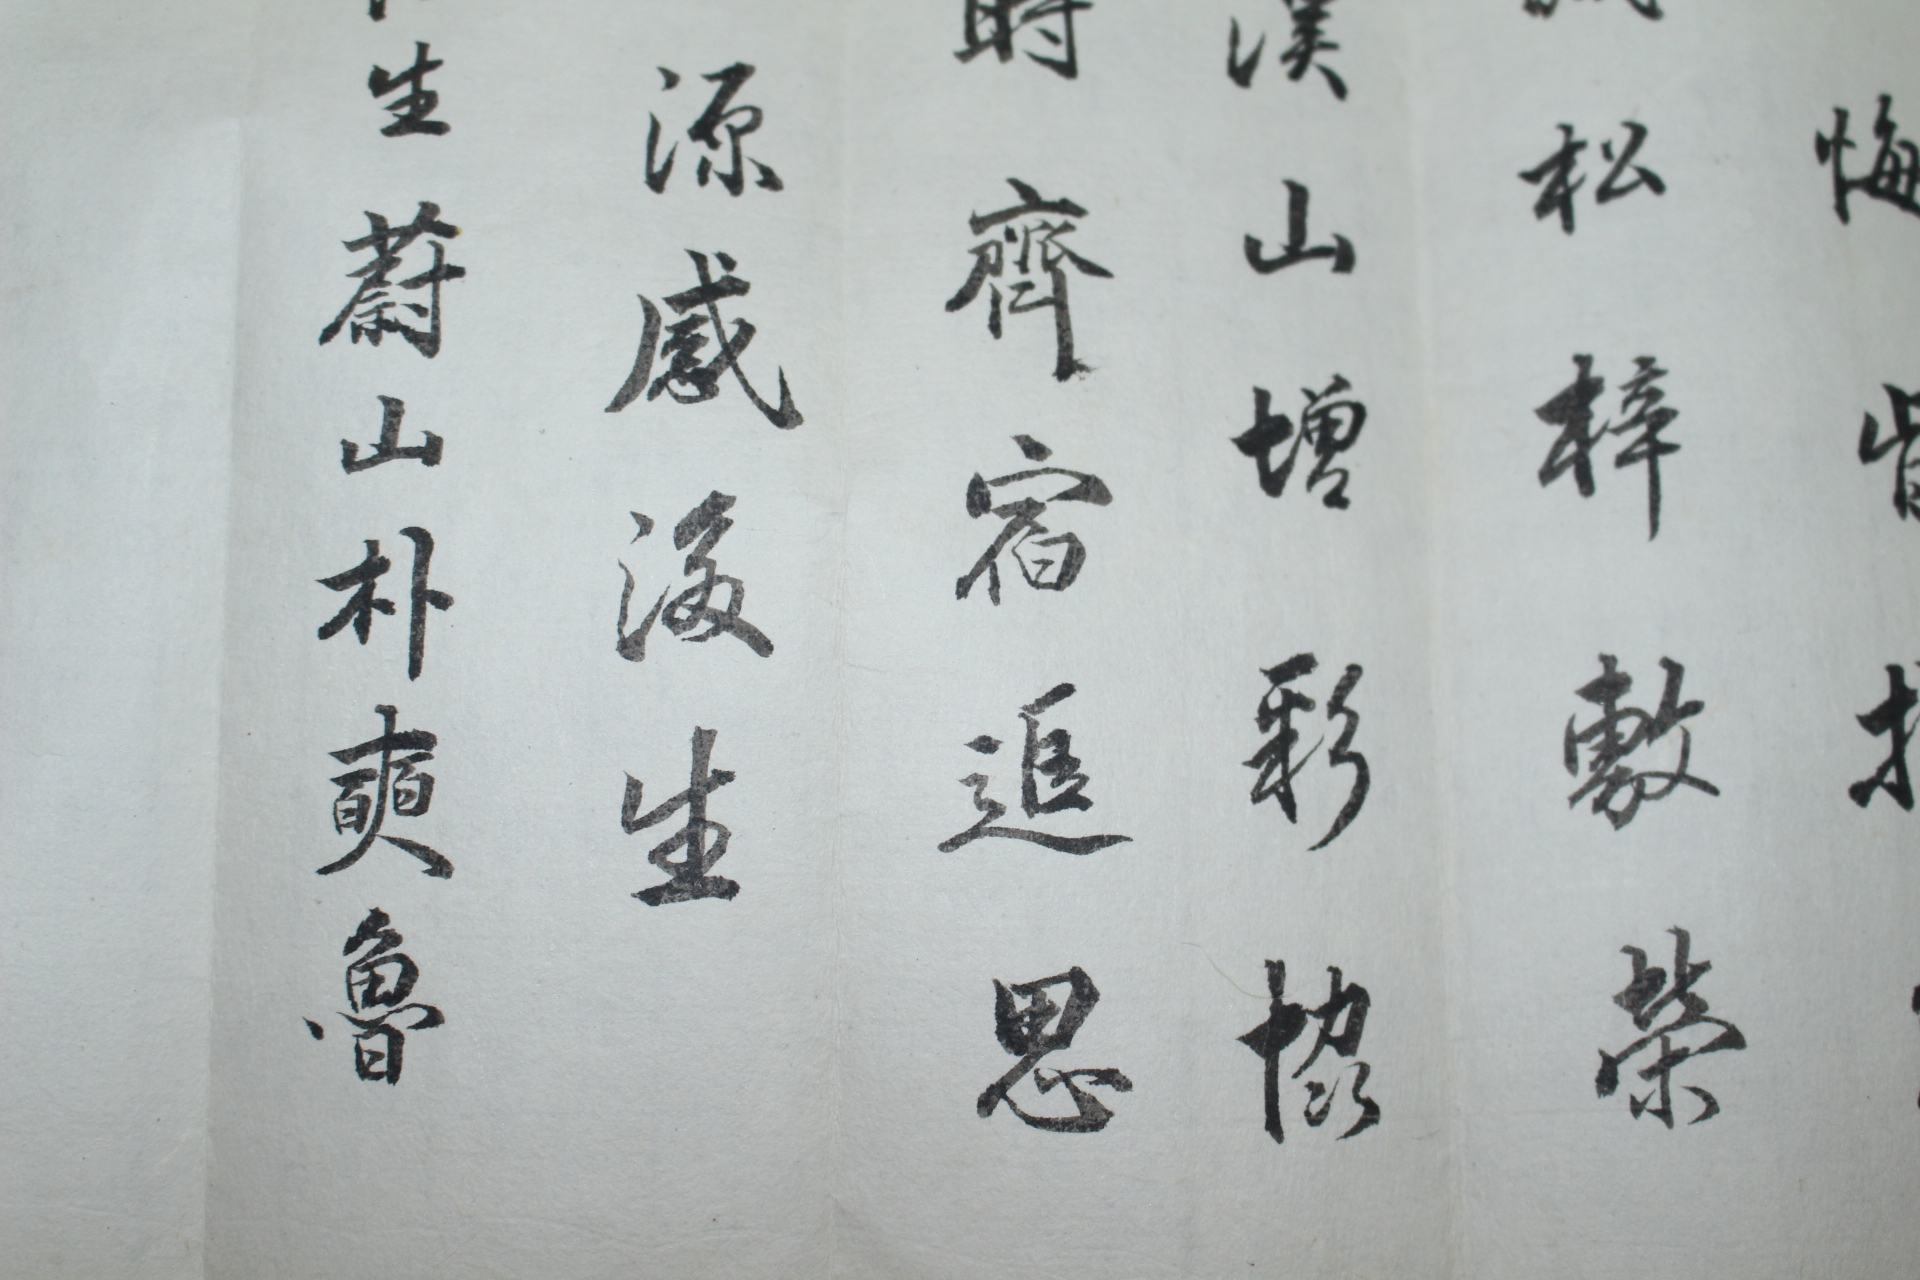 悔 皆
松梓敷榮
漢山增彩協
時齊宿追思
源感後生
生蔚山朴奭魯